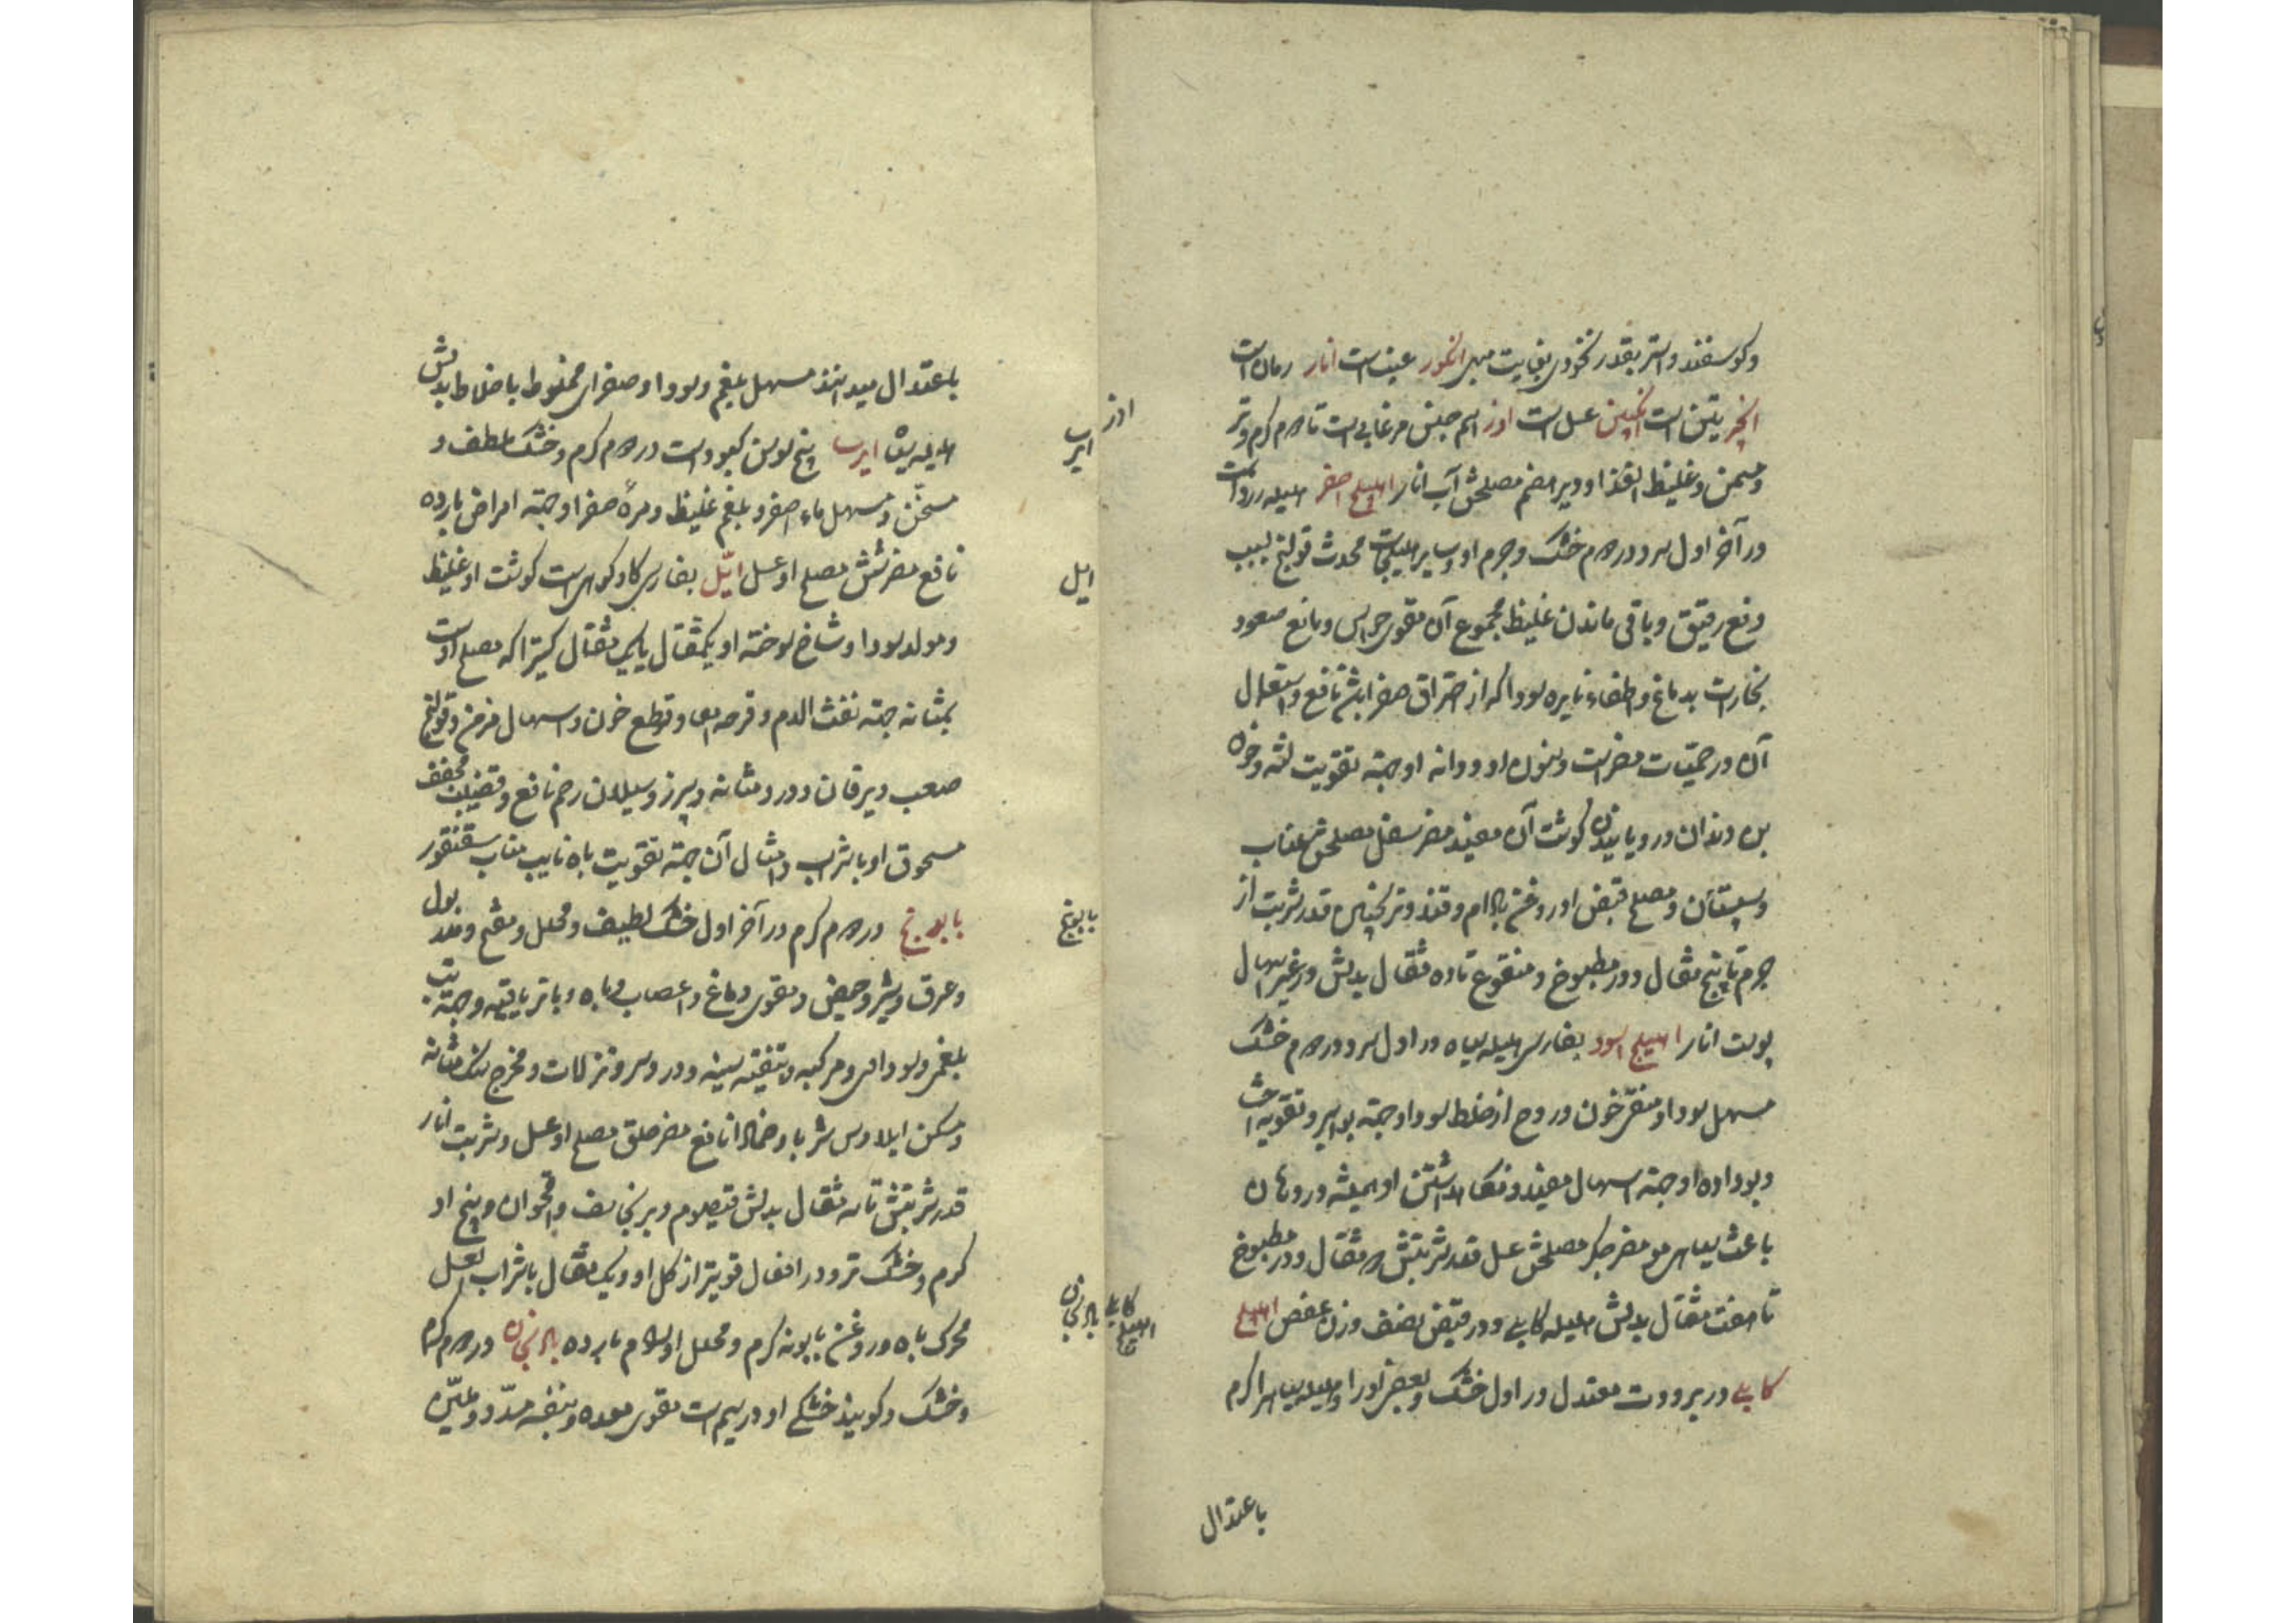 وکوسفند و استر بقدر نخودی بغایت مبهی انکور عنب است انار رمان است
انجیر تین است انکبین عسل است اوز اسم جنس مرغابی است تا دوم کرم و تر
و مسمن و غلیظ الغذا و دیر هضم مصلحش آب انار اهلیلج اصفر هلیله زرد است
در آخر اول سرد و در دوم خشک و جرم او و سایر هلیلجات محدث قولنج بسبب
دفع رقیق و باقی ماندن غلیظ مجموع آن مقوی حواس و مانع صعود
بخارات بدماغ و اطفاء نایره سودا که از احتراق صفرا باشد نافع و استعمال
آن در حمیات مضر است و سنون او و دانه او جهة تقویت لثه و خون
بن دندان و رویانیدن کوشت آن مفید مضر سفل مصلحش عناب
و سپستان و مصلح قبض او روغن بادام و قند و ترنجبین قدر شربت از
جرم تا پنج مثقال و در مطبوخ و منقوع تا ده مثقال بدلش در غیر اسهال
پوست انار اهلیلج اسود بفارسی هلیله سیاه در اول سرد و در دوم خشک
مسهل سودا و منقی خون و روح از خلط سودا و جهة بواسیر و تقویه احشا
و بوداده او جهة اسهال مفید و نکاهداشتن او همیشه در دهان
باعث سیاهی مو مضر جکر مصلحش عسل قدر شربتش سه مثقال و در مطبوخ
تا هفت مثقال بدلش هلیله کابلی و در قبض نصف وزن عفص اهلیلج
کابلی در برودت معتدل در اول خشک و بعضی او را و هلیله سیاه را کرم
باعتدال
اوز
اهلیلج کابلی
باعتدال میدانند مسهل بلغم و سودا و صفرای مخلوط باخلاط بدلش
هلیله سیاه ایرسا بیخ سوسن کبود است در دوم کرم و خشک ملطف و
مسخن و مسهل ماء اصفر و بلغم غلیظ و مره صفرا و جهة امراض بارده
نافع مضر شش مصلح او عسل ایّل بفارسی کاو کوهی است کوشت او غلیظ
و مولد سودا و شاخ سوخته او یکمثقال با یک مثقال کتیرا که مصلح اوست
بمثانه جهة نفث الدم و قرحه امعا و قطع خون و اسهال مزمن و قولنج
صعب و یرقان و درد مثانه و سپرز و سیلان رحم نافع و قضیب مجفف
مسحوق او با شراب و امثال آن جهة تقویت باه نایب مناب سقنقور
بابونج در دوم کرم در آخر اول خشک لطیف و محلل و مفتح و مدر بول
و عرق و شیر و حیض و مقوی دماغ و اعصاب و باه و با تریاقیه و جهة تب
بلغمی و سوداوی و مرکبه و تنقیه سینه و درد سر و نزلات و مخرج سنک مثانه
و مسکن ایلاوس شربا و ضمادا نافع مضر حلق مصلح او عسل و شربت انار
قدر شربتش تا سه مثقال بدلش قیصوم و برنجاسف و اقحوان و بیخ او
کرم و خشک تر و در افعال قویتر از کل او و یک مثقال با شراب و عسل
محرک باه و روغن بابونه کرم و محلل اورام بارده بادرنجبویه در دوم کرم
و خشک و کویند خشکی او در سیم است مقوی معده و بنفسه مسدد و ملین
ایرسا
ایل
بابونج